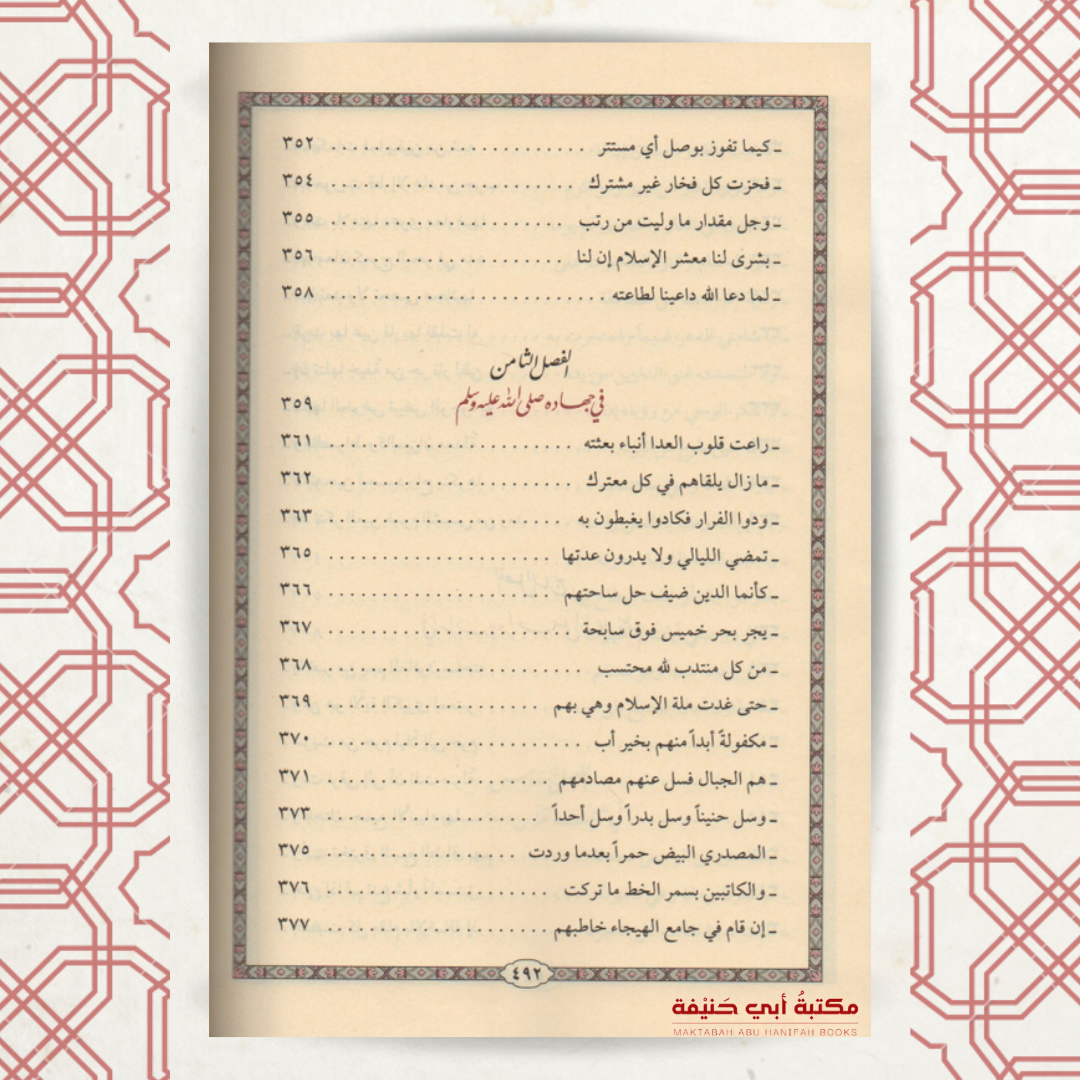 ـ كيما تفوز بوصل أي مستتر . . . . . . . . . . . . . . . . . . . . ٣٥٢
ـ فحزت كل فخار غير مشترك . . . . . . . . . . . . . . . . . . . . ٣٥٤
ـ وجل مقدار ما وليت من رتب . . . . . . . . . . . . . . . . . . . . ٣٥٥
ـ بشرى لنا معشر الإسلام إن لنا . . . . . . . . . . . . . . . . . . . . ٣٥٦
ـ لما دعا الله داعينا لطاعته . . . . . . . . . . . . . . . . . . . . ٣٥٨
الفصل الثامن
في جهاده صلى الله عليه وسلم ٣٥٩
ـ راعت قلوب العدا أنباء بعثته . . . . . . . . . . . . . . . . . . . . ٣٦١
ـ ما زال يلقاهم في كل معترك . . . . . . . . . . . . . . . . . . . . ٣٦٢
ـ ودوا الفرار فكادوا يغبطون به . . . . . . . . . . . . . . . . . . . . ٣٦٣
ـ تمضي الليالي ولا يدرون عدتها . . . . . . . . . . . . . . . . . . . . ٣٦٥
ـ كأنما الدين ضيف حل ساحتهم . . . . . . . . . . . . . . . . . . . . ٣٦٦
ـ يجر بحر خميس فوق سابحة . . . . . . . . . . . . . . . . . . . . ٣٦٧
ـ من كل منتدب لله محتسب . . . . . . . . . . . . . . . . . . . . ٣٦٨
ـ حتى غدت ملة الإسلام وهي بهم . . . . . . . . . . . . . . . . . . . . ٣٦٩
ـ مكفولةً أبداً منهم بخير أب . . . . . . . . . . . . . . . . . . . . ٣٧٠
ـ هم الجبال فسل عنهم مصادمهم . . . . . . . . . . . . . . . . . . . . ٣٧١
ـ وسل حنيناً وسل بدراً وسل أحداً . . . . . . . . . . . . . . . . . . . . ٣٧٣
ـ المصدري البيض حمراً بعدما وردت . . . . . . . . . . . . . . . . . . . . ٣٧٥
ـ والكاتبين بسمر الخط ما تركت . . . . . . . . . . . . . . . . . . . . ٣٧٦
ـ إن قام في جامع الهيجاء خاطبهم . . . . . . . . . . . . . . . . . . . . ٣٧٧
٤٩٢
مكتبةُ أبي حَنيْفة
MAKTABAH ABU HANIFAH BOOKS